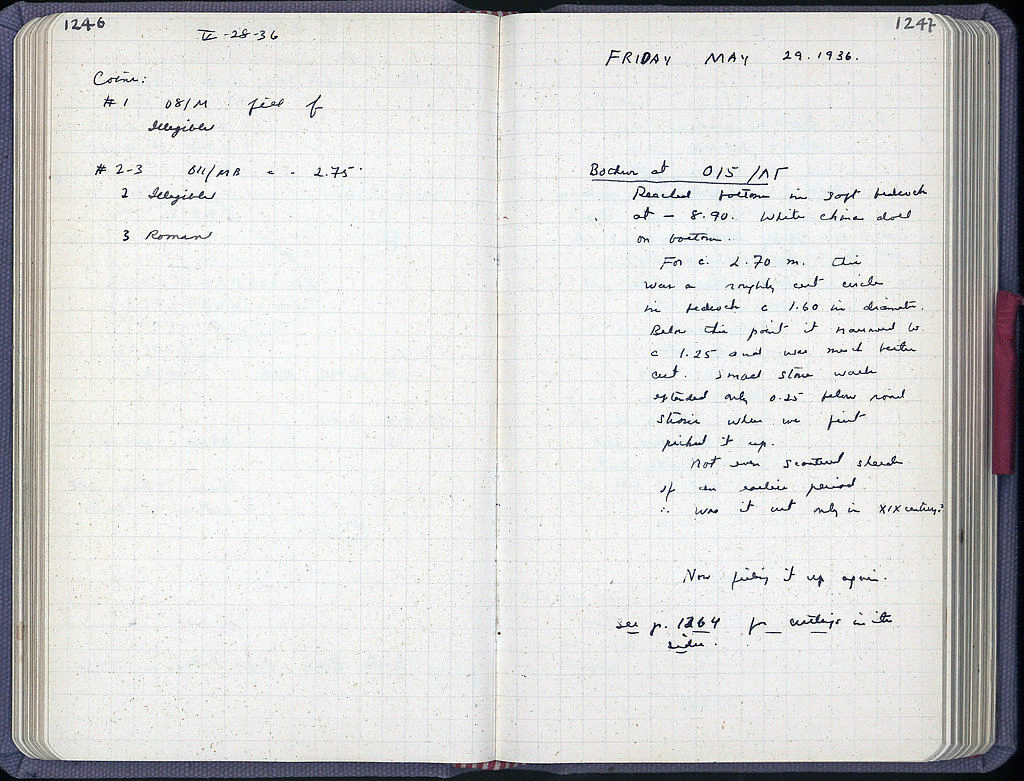 1246
V-28-36
Coins:
#1 08/M fill of
Illegible
#2-3 011/MB c - 2.75
2 Illegible
3 Roman
1247
FRIDAY MAY 29.1936.
at 015/
Reached bottom in soft bedrock
at - 8.90. White china doll
on bottom.
For c. 2.70 m. this
was a roughly cut circle
in bedrock c 1.60 in diameter.
Below this point it narrowed to
c 1.25 and was much better
cut. Small stone walls
extended only 0.25 below road
when we first
picked it up.
Not even scattered sherds
of an earlier period
∴ was it cut only in XIX century?
Now filling it up again.
see p. 1264 for cuttings in its
sides.